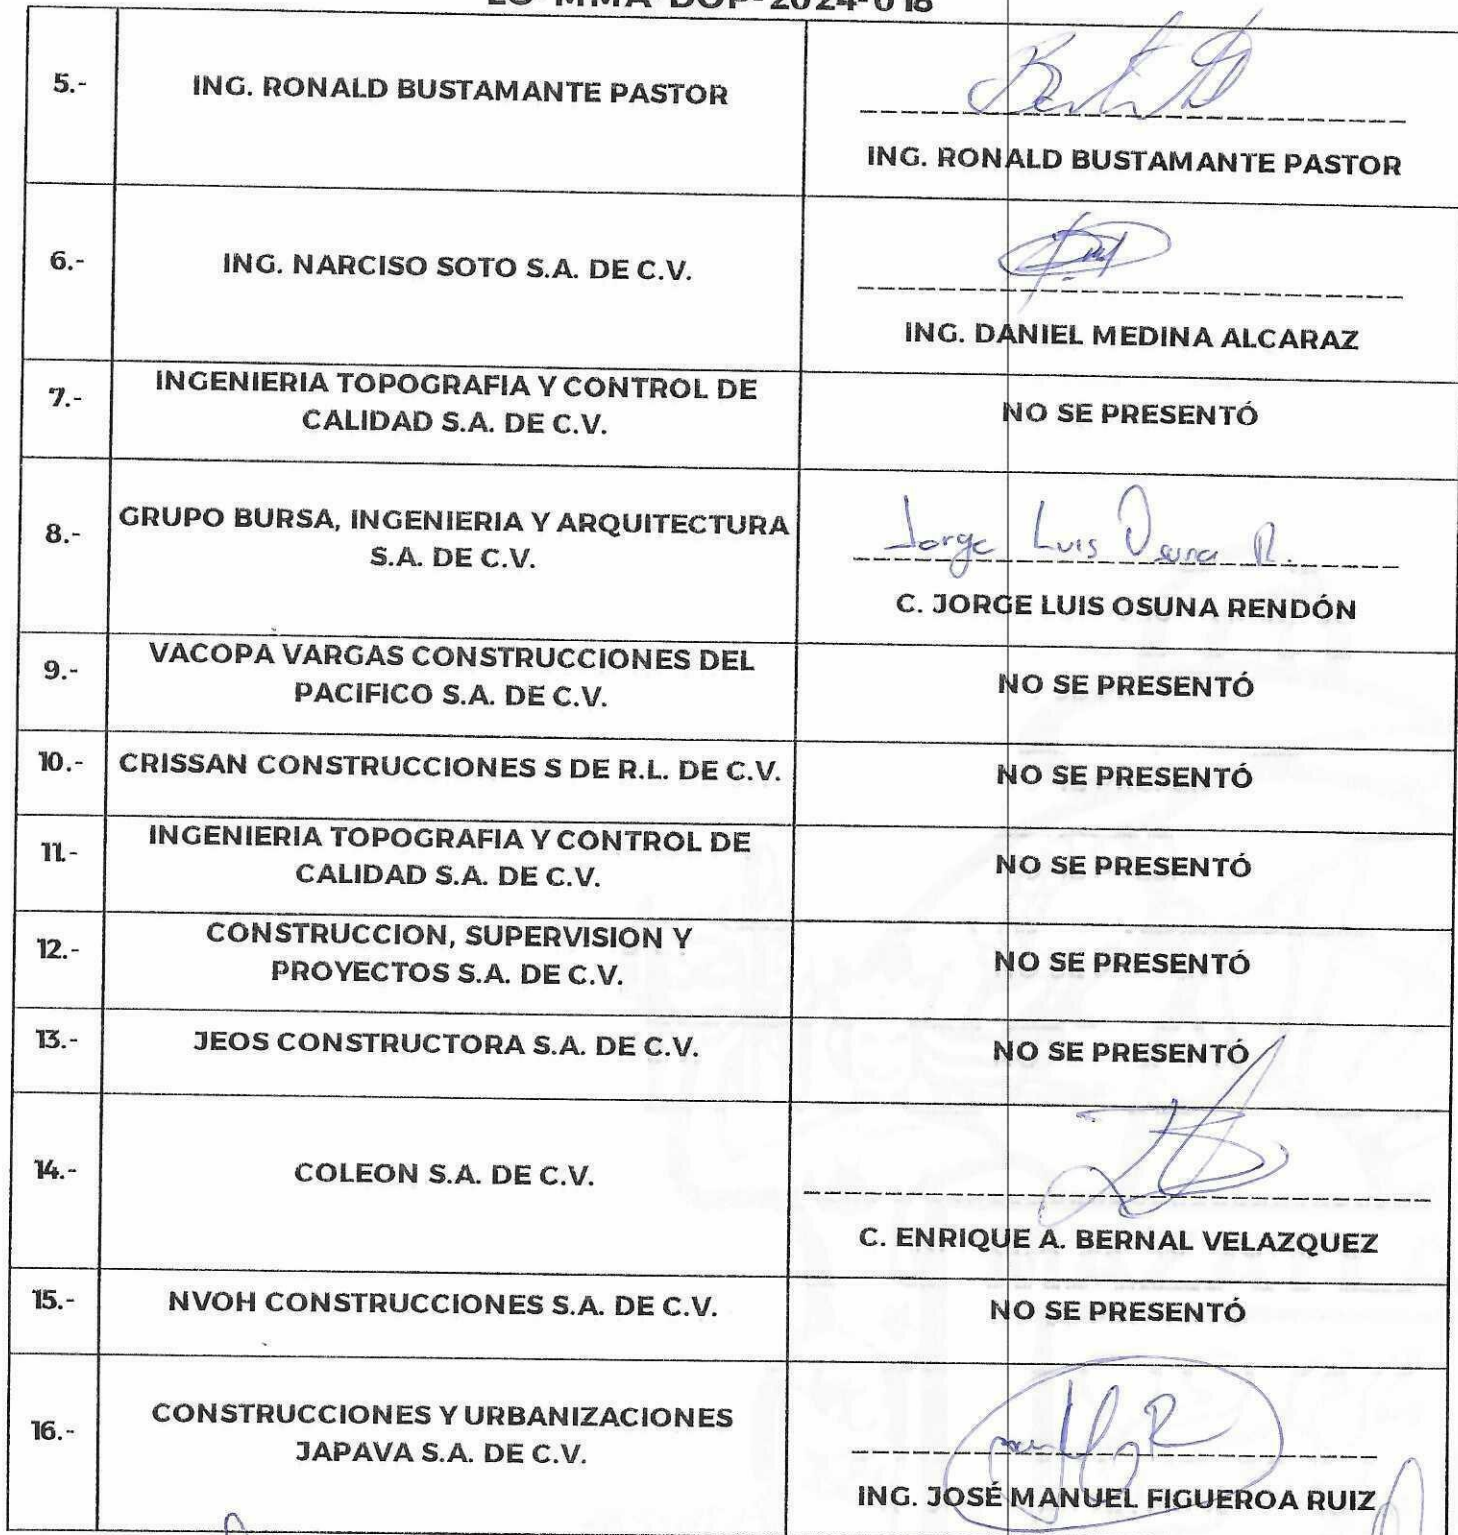 LO-MMA-DOP-2024-018
5.-
ING. RONALD BUSTAMANTE PASTOR
ING. RONALD BUSTAMANTE PASTOR
6.-
ING. NARCISO SOTO S.A. DE C.V.
ING. DANIEL MEDINA ALCARAZ
7.-
INGENIERIA TOPOGRAFIA Y CONTROL DE
CALIDAD S.A. DE C.V.
NO SE PRESENTÓ
8.-
GRUPO BURSA, INGENIERIA Y ARQUITECTURA
S.A. DE C.V.
Jorge Luis Osuna R.
C. JORGE LUIS OSUNA RENDÓN
9.-
VACOPA VARGAS CONSTRUCCIONES DEL
PACIFICO S.A. DE C.V.
NO SE PRESENTÓ
10.-
CRISSAN CONSTRUCCIONES S DE R.L. DE C.V.
NO SE PRESENTÓ
11.-
INGENIERIA TOPOGRAFIA Y CONTROL DE
CALIDAD S.A. DE C.V.
NO SE PRESENTÓ
12.-
CONSTRUCCION, SUPERVISION Y
PROYECTOS S.A. DE C.V.
NO SE PRESENTÓ
13.-
JEOS CONSTRUCTORA S.A. DE C.V.
NO SE PRESENTÓ
14.-
COLEON S.A. DE C.V.
C. ENRIQUE A. BERNAL VELAZQUEZ
15.-
NVOH CONSTRUCCIONES S.A. DE C.V.
NO SE PRESENTÓ
16.-
CONSTRUCCIONES Y URBANIZACIONES
JAPAVA S.A. DE C.V.
ING. JOSÉ MANUEL FIGUEROA RUIZ